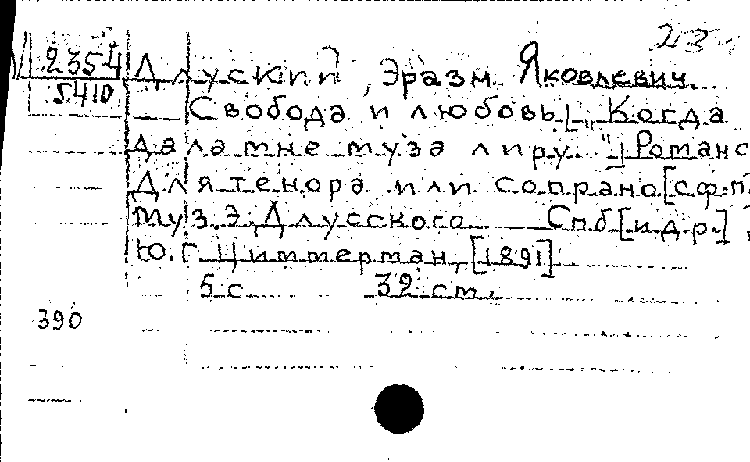 23
2354
5410
Длуский, Эразм Яковлевич.
Свобода и любовь [„Когда
дала мне муза лиру..."] Романс
для тенора или сопрано [с ф.-п.]
Муз. Э. Длусского Спб [и др.],
Ю. Г. Циммерман, [1891]
5 с. 32 см.
390